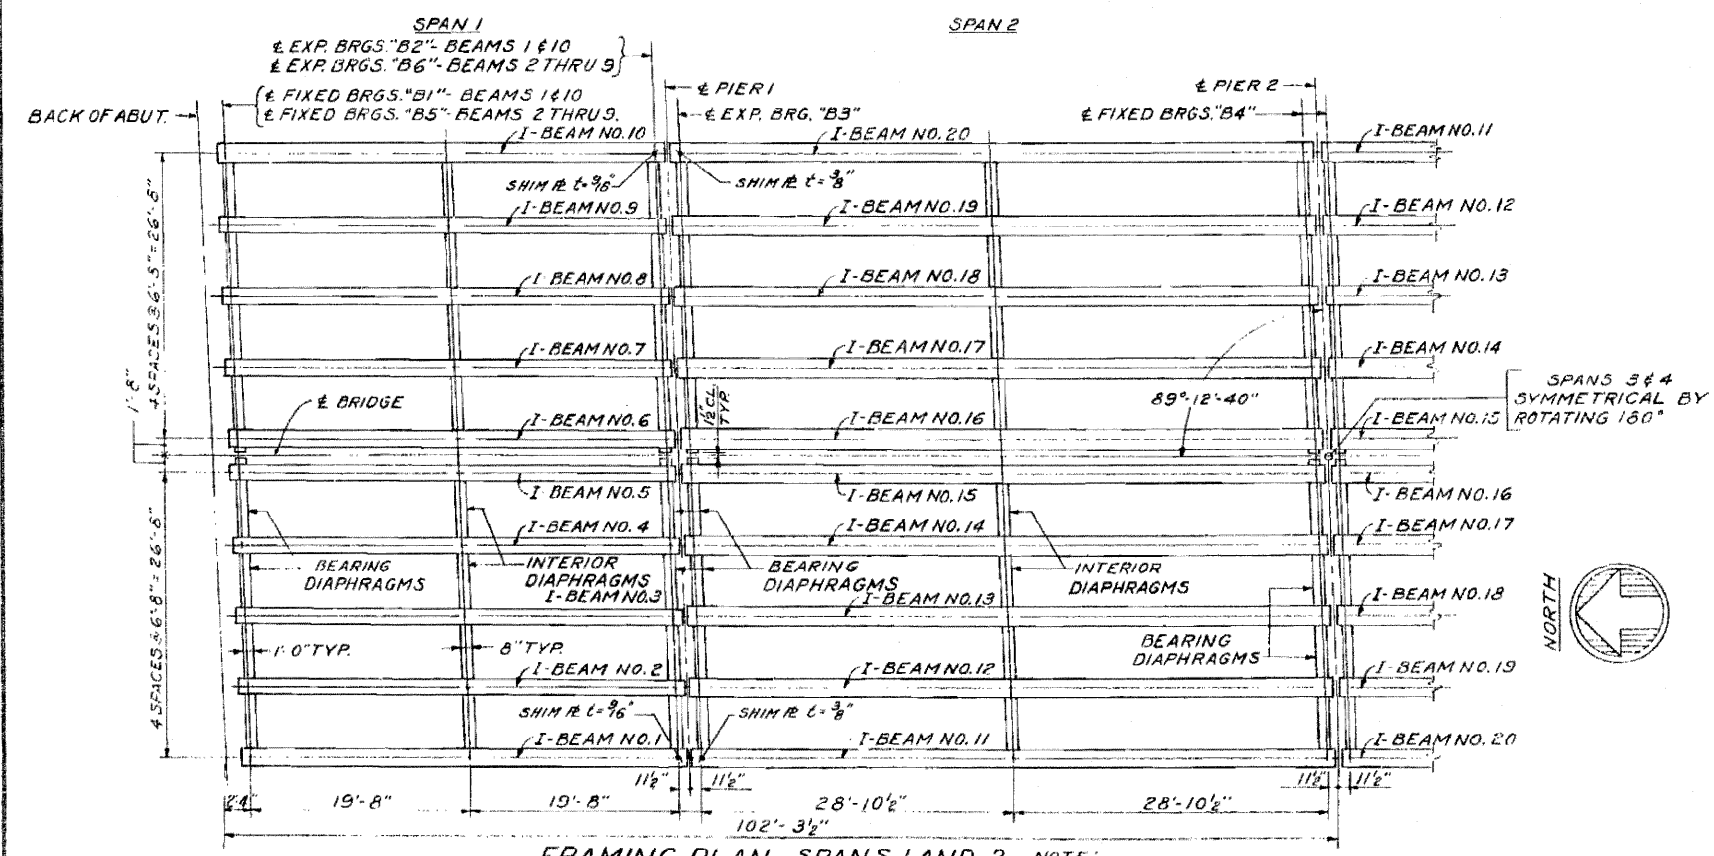 SPAN 1
SPAN 2
℄ EXP. BRGS. "B2" - BEAMS 1 & 10
℄ EXP. BRGS. "B6" - BEAMS 2 THRU 9
℄ FIXED BRGS. "B1" - BEAMS 1 & 10
℄ FIXED BRGS. "B5" - BEAMS 2 THRU 9.
BACK OF ABUT.
℄ PIER 1
℄ EXP. BRG. "B3"
℄ PIER 2
℄ FIXED BRGS. "B4"
I-BEAM NO. 10
I-BEAM NO. 20
I-BEAM NO. 11
SHIM ℙL t = 9/16"
SHIM ℙL t = 3/8"
I-BEAM NO. 9
I-BEAM NO. 19
I-BEAM NO. 12
I-BEAM NO. 8
I-BEAM NO. 18
I-BEAM NO. 13
I-BEAM NO. 7
I-BEAM NO. 17
I-BEAM NO. 14
1'-8"
℄ BRIDGE
1½" CL.
TYP.
89°-12'-40"
SPANS 3 & 4
SYMMETRICAL BY
ROTATING 180°
I-BEAM NO. 6
I-BEAM NO. 16
I-BEAM NO. 15
I-BEAM NO. 5
I-BEAM NO. 15
I-BEAM NO. 16
I-BEAM NO. 4
I-BEAM NO. 14
I-BEAM NO. 17
BEARING
DIAPHRAGMS
INTERIOR
DIAPHRAGMS
BEARING
DIAPHRAGMS
INTERIOR
DIAPHRAGMS
I-BEAM NO. 3
I-BEAM NO. 13
I-BEAM NO. 18
4 SPACES @ 6'-8" = 26'-8"
NORTH
1'-0" TYP.
8" TYP.
BEARING
DIAPHRAGMS
I-BEAM NO. 2
I-BEAM NO. 12
I-BEAM NO. 19
SHIM ℙL t = 9/16"
SHIM ℙL t = 3/8"
I-BEAM NO. 1
I-BEAM NO. 11
I-BEAM NO. 20
11½"
11½"
11½"
11½"
19'-8"
19'-8"
28'-10½"
28'-10½"
102'-3½"
FRAMING PLAN SPANS 1 AND 2
NOTE: